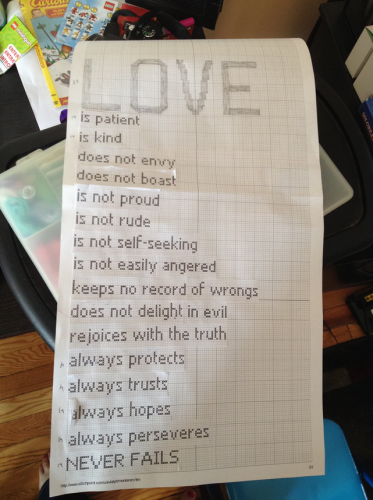 LOVE
is patient
is kind
does not envy
does not boast
is not proud
is not rude
is not self-seeking
is not easily angered
keeps no record of wrongs
does not delight in evil
rejoices with the truth
always protects
always trusts
always hopes
always perseveres
NEVER FAILS